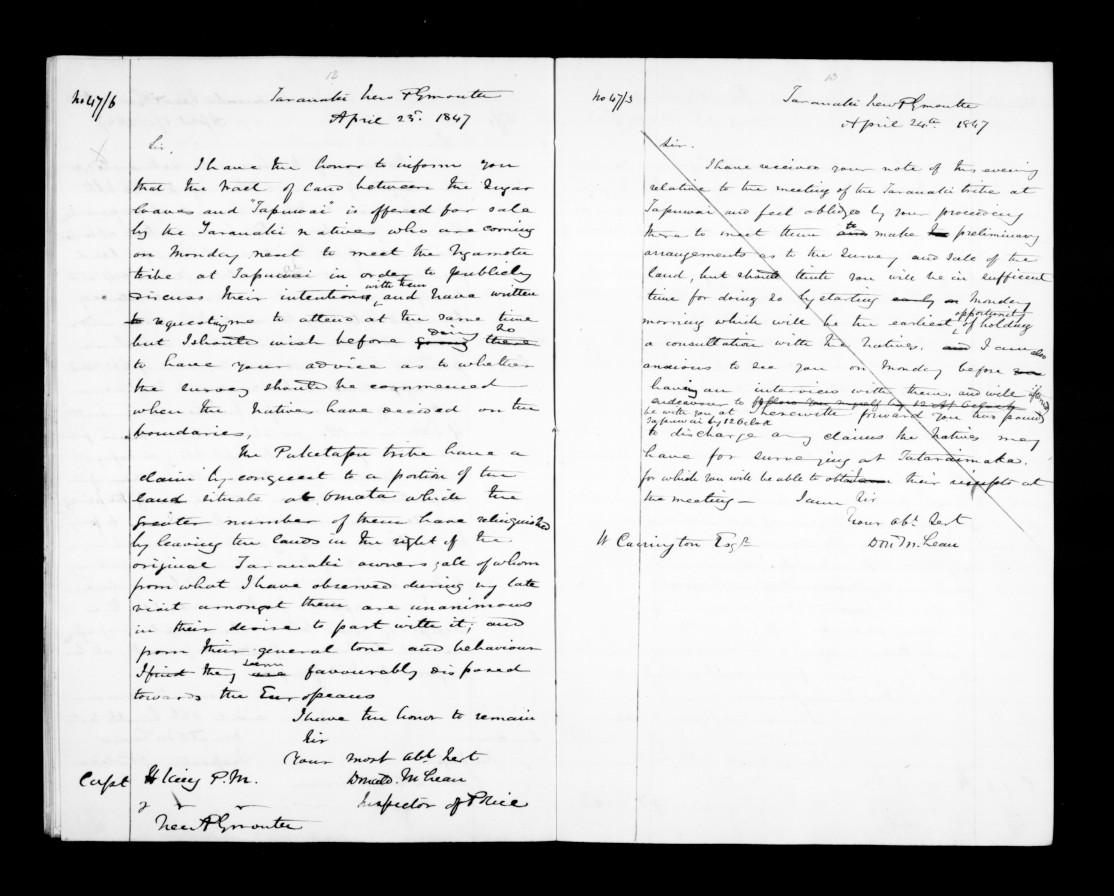 12
No 47/6
Taranaki New Plymouth
April 23rd. 1847
Sir.
I have the honor to inform you
that the tract of land between the Sugar
loaves and "Tapuwai" is offered for sale
by the Taranaki natives who are coming
on Monday next to meet the Ngamotu
tribe at Tapuwai in order to publicly
discuss their intentions, with them and have written
to requesting me to attend at the same time
but I should wish before going there doing so
to have your advice as to whether
the survey should be commenced
when the Natives have decided on the
boundaries,
The Puketapu tribe have a
claim by conquest to a portion of the
land situate at Omata which the
greater number of them have relinquished
by leaving the lands in the right of the
original Taranaki owners; all of whom
from what I have observed during my late
visit amongst them are unanimous
in their desire to part with it; and
from their general tone and behaviour
I find they are seem favourably disposed
towards the Europeans
I have the honor to remain
Sir
Your most obt Sert
Capt H King P.M.
Donald McLean
Inspector of Police
New Plymouth
13
No 47/3
Taranaki New Plymouth
April 24th 1847
Sir.
I have received your note of this evening
relative to the meeting of the Taranaki tribe at
Tapuwai and feel obliged by your proceeding
there to meet them and to make preliminary
arrangements as to the survey and sale of the
land, but should think you will be in sufficient
time for doing so by starting early on Monday
morning which will be the earliest opportunity of holding
a consultation with the Natives. and I am also
anxious to see you on Monday before
having an interview with them, and will
endeavour to follow you myself by 12 of Oclock
be with you at Tapuwai by 12 Oclock
I herewith forward you two pounds
to discharge any claims the Natives may
have for surveying at Tataraimaka.
for which you will be able to obtain their receipts at
the meeting —
I am Sir
Your obt Sert
W Carrington Esqr
Don. McLean